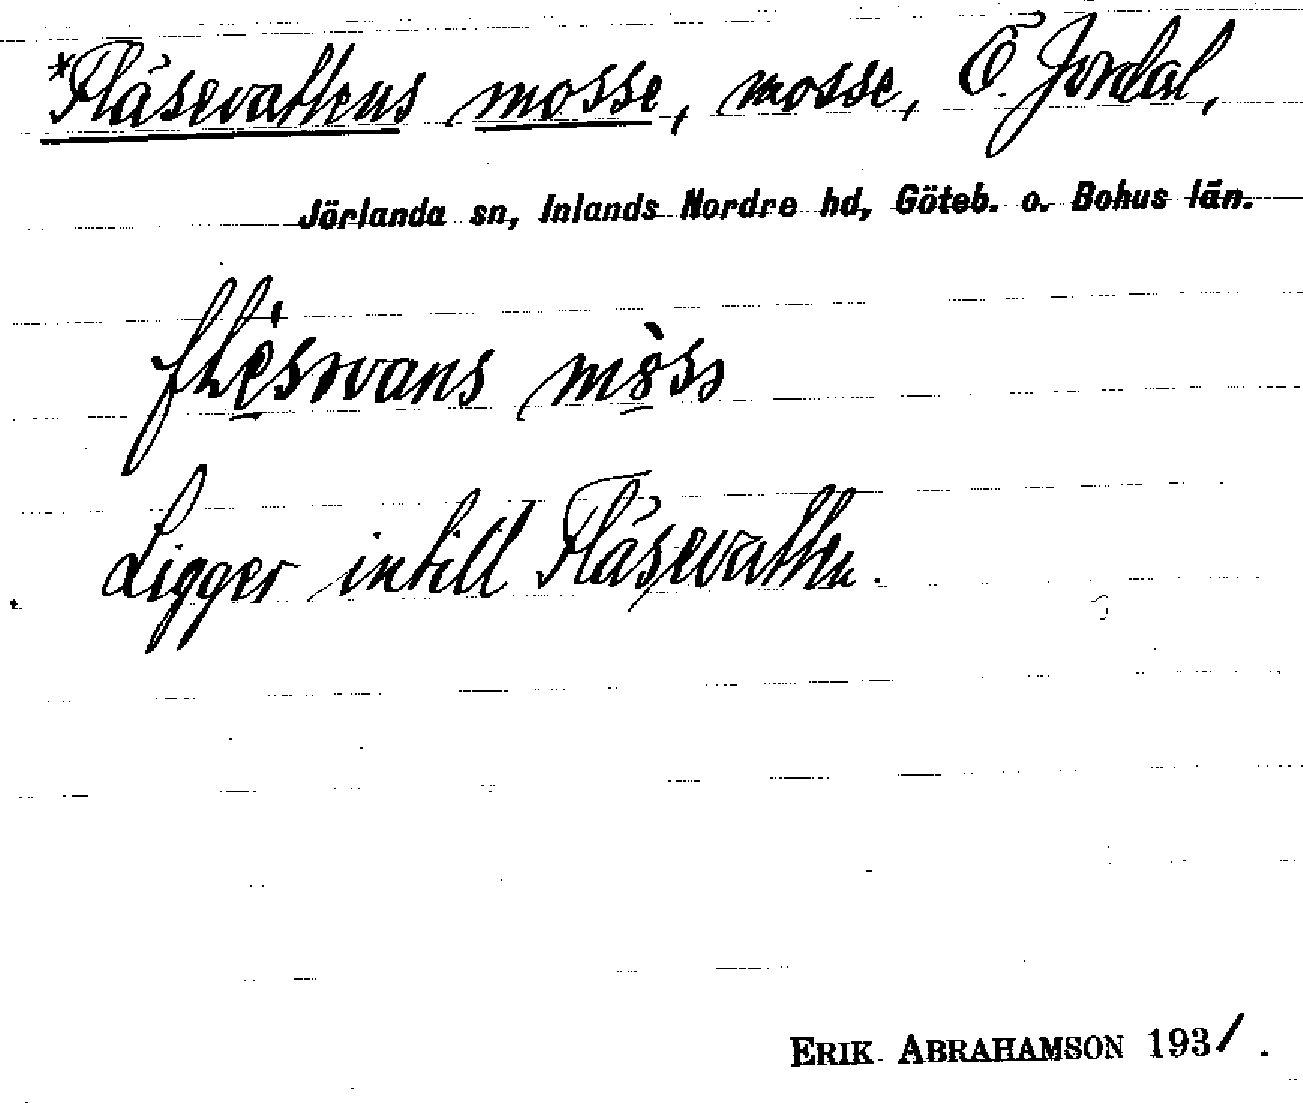 *Flåsevattens mosse, mosse, Ö. Jordal,
Jörlanda sn, Inlands Nordre hd, Göteb. o. Bohus län.
Ligger intill Flåsevatten.
ERIK ABRAHAMSON 1931.